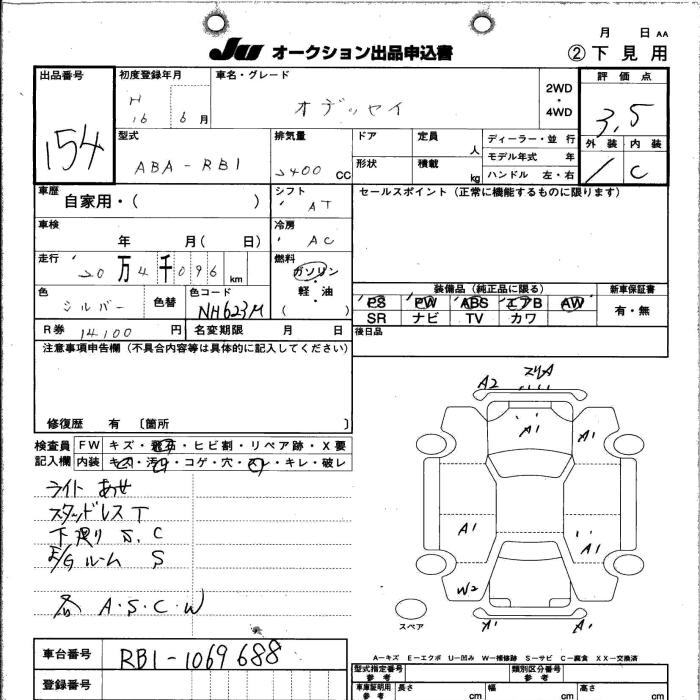 月 日 AA
JU オークション出品申込書 ②下見用
出品番号 初度登録年月 車名・グレード 2WD・4WD 評価点
154 H16 6月 オデッセイ 3.5
型式 排気量 ドア 定員 人 ディーラー・並行 外装 内装
ABA-RB1 2400 CC 形状 積載 kg モデル年式 年 C
ハンドル 左・右
車歴 シフト セールスポイント (正常に機能するものに限ります)
自家用・( ) AT
車検 冷房
年 月( 日) AC
走行 燃料
20万4千096km ガソリン・軽油
装備品 (純正品に限る) 新車保証書
色 シルバー 色替 色コード NH623M
PS PW ABS エアB AW 有・無
SR ナビ TV カワ
R券 14100円 名変期限 月 日 後日品
注意事項申告欄 (不具合内容等は具体的に記入してください)
修復歴 有 〔箇所 〕
検査員 FW キズ・ ・ヒビ割・リペア跡・X要
記入欄 内装 キズ・汚れ・コゲ・穴・スレ・キレ・破レ
A2 スリA
A1 A1
A1 A1
W2
A1 A1
スペア
ライト あせ
スタッドレスT
下廻り S.C
E/Gルーム S
各 A・S・C・W
A-キズ E-エクボ U-凹み W-補修跡 S-サビ C-腐食 XX-交換済
車台番号 RB1-1069688
登録番号
型式指定番号 参考 類別区分番号 参考
車庫証明用 参考 長さ cm 幅 cm 高さ cm